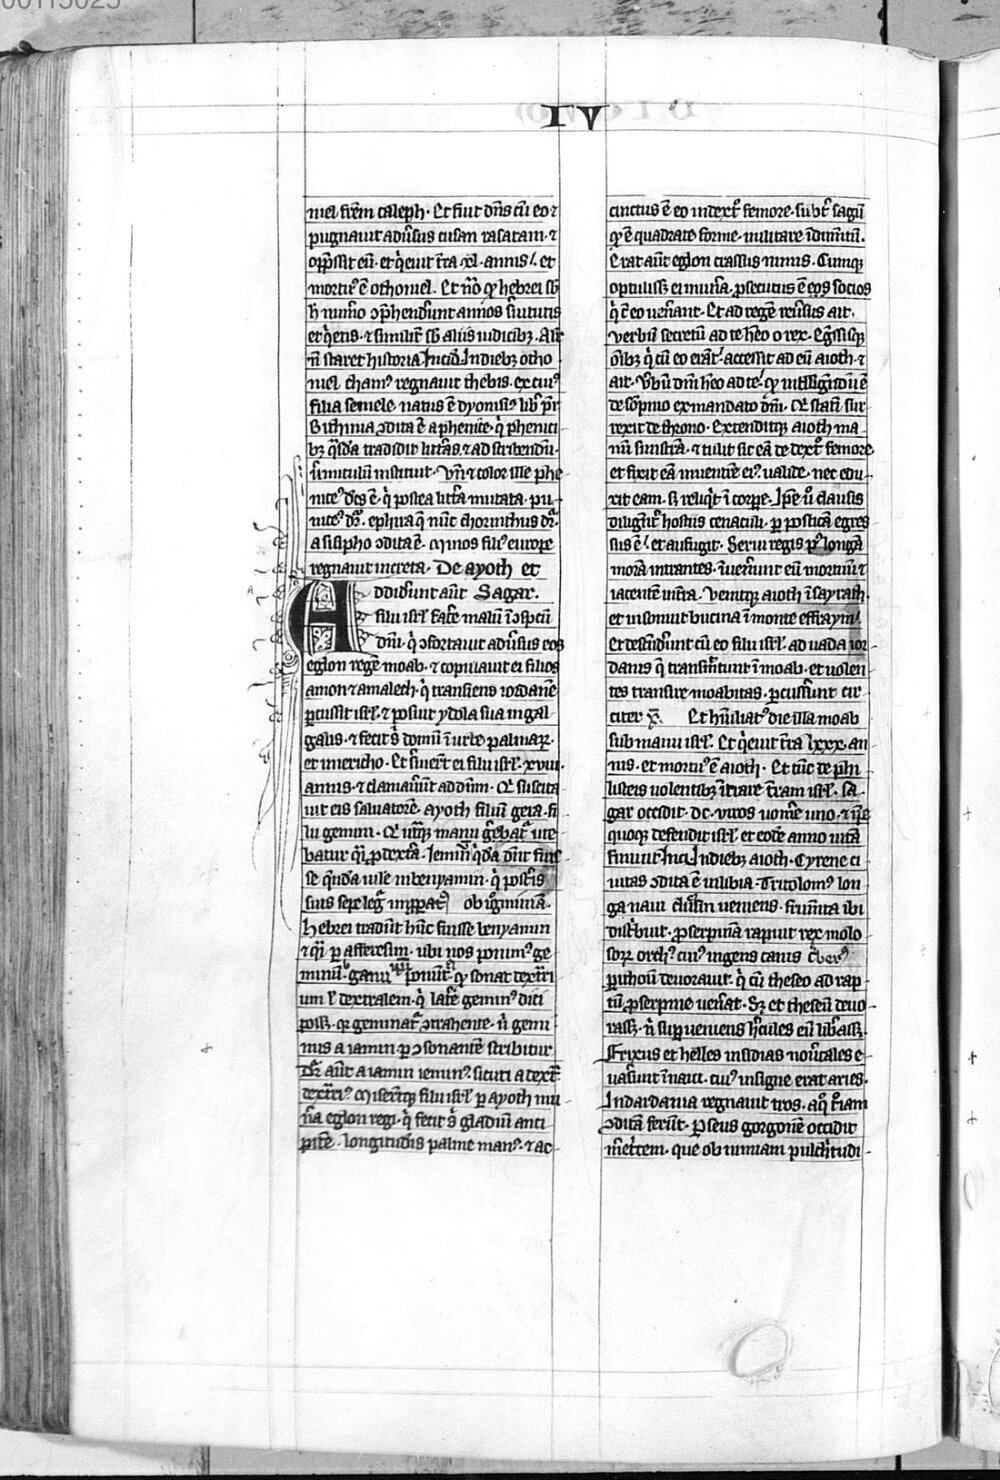 00113025
IV
niel frēm caleph. Et fiuit dn̄s cū eo ⁊
pugnauit adūsus cusan rasatain. ⁊
opp̄ssit eū. et q̄euit t̄ra xl. annis. et
mortu᷒ ē othoniel. Et nō qꝫ hebrei sb̄
h̄ numo ꝯp̄hendūnt annos s̄uitutis
et q̄etis. ⁊ similit̄ sb̄ aliis iudicibꝫ. Alit̄
n̄ staret historia Incid̄. In diebꝫ otho
niel cham᷒ regnauit thebis. ex cui᷒
filia semele natus ē dyonisi᷒ lib̄ p̄r
Bithinia ꝯdita ē a phenice. q̇ phenici
bꝫ q̇sdā tradidit litt̄as. ⁊ ad scribendū.
ūmiculū instituit. Vn̄ ⁊ color ille phe
nice᷒ dc̄s ē. q̇ postea litt̄a mutata. pu
nice᷒ dr̄. ephira q̄ nūc chorinthus dr̄.
a sisipho ꝯdita ē. Minos fili᷒ europe
regnauit in creta. De ayoth et
Addiderunt aūt Sagar.
filii isrl̄. fac̄e malū ī ꝯspc̄u
dn̄i. q̇ ꝯfortauit adūsus eos
eglon regē moab. ⁊ copulauit ei filios
amon ⁊ amalech. q̇ transiens iordanē
p̄cussit isrl̄. ⁊ posuit ydola sua in gal
galis. ⁊ fecit s̄ domū ī urbe palmaꝝ.
et in iericho. Et s̄uiert̄ ei filii isrl̄. xviii.
annis. ⁊ clamauūt ad dn̄m. Qⁱ suscita
uit eis saluatorē ayoth filiū gera. fi
lii gemini. Qⁱ ut̄qꝫ manu
batur q̇i p̄ dext̄a. Iemin̄ q̇dā dn̄t fuis
se q̄ndā uile in beniamin. q̇ post̄is
suis sepe leḡ ob ig̊miniā.
hebrei tradūt hūc fuisse beniamin
⁊ q̇i p̄ afferesim. ubi nos ponim᷒ ge
minū. ponūt. qꝫ sonat dext̄ri
um ł dextralem. q̇ lat̄e gemin᷒ dici
poss̄. qꝫ geminat̄ ꝯtrahente. n̄ gemi
nus a iamin p̄ ꝯsonantē scribitur
Dr̄ aūt a iamin iemin᷒. sicuti a dext̄
dext̄ri᷒ Miserūtqꝫ filii isrl̄ p̄ ayoth mu
n̄a eglon regi. q̇ fecit s̄ gladiū anci
pitē. longitudīs palme man᷒. ⁊ ac
cinctus ē eo in dext̊ femore. subt̄ sagū
qꝫ ē quadrate forme. militare īdumtū.
Erat aūt eglon crassus nimis. Cumqꝫ
optuliss̄ ei mun̄a. p̄secutus ē eos socios
q̇ cē eo ueūant. Et ad regē reūsus ait.
Verbū secretū ad te h̄eo o rex. Eḡssisqꝫ
oībꝫ q̇ cū eo erāt. accessit ad eū aioth. ⁊
ait. Vb̄ū dn̄i h̄eo ad te.
de sōpnio ex mandato dn̄i. Qⁱ statī sur
rexit de throno. Extenditqꝫ aioth ma
nū sinistrā. ⁊ tulit sic eā de dext̊ femore
et fixit eā in uentrē ei᷒ ualide. nec edu
xit eam. s̄ reliq̇t ī corpe. Ip̄e ū clausis
diligent̄ hostiis cenaculi. p̄ posticā egres
sus ē. et aufugit. Serui regis p᷒ longā
morā intrantes. īuenert̄ eū mortuū ⁊
iacentē in t̄ra. Venitqꝫ aioth ī sayrath
et insonuit bucina ī monte effraym.
Et descēdūnt cū eo filii isrl̄. ad uada ior
danis q̄ transmittunt ī moab. et uolen
tes transire moabitas. p̄cussunt cir
citer x̄. Et humiliat᷒ die illa moab
sub manu isrl̄. Et q̄euit t̄ra lxxx. an
nis. et mortu᷒ ē aioth. Et tūc de phi
listeis uolentibꝫ ītrare t̄ram isrl̄. sa
gar occidit. dc. uiros uomē uno. ⁊ ip̄e
quoqꝫ defendit isrl̄. et eodē anno uitā
finiuit Inci. In diebꝫ aioth. Cyrene ci
uitas ꝯdita ē in libia. Tritolom᷒ lon
ga naui eleusin ueniens. frum̄ta ibi
distⁱbuit. p̄serpinā rapuit rex molo
soꝝ orch᷒. cui᷒ ingens canis cerber᷒
pithoū deuorauit. q̇ cū theseo ad rap
tū p̄serpine uen̄at. Sꝫ et theseū deuo
rass̄. n̄ sup̄ueniens h̄cules eū lib̄ass̄.
Frixus et helles insidias nou̇cales e
uasunt ī naui. cui᷒ insigne erat aries.
In dardania regnauit tros. a quo troiam
ꝯditā ferūt. p̄seus gorgonē occidit
m̄et̄cem. que ob nimiam pulchⁱtudi